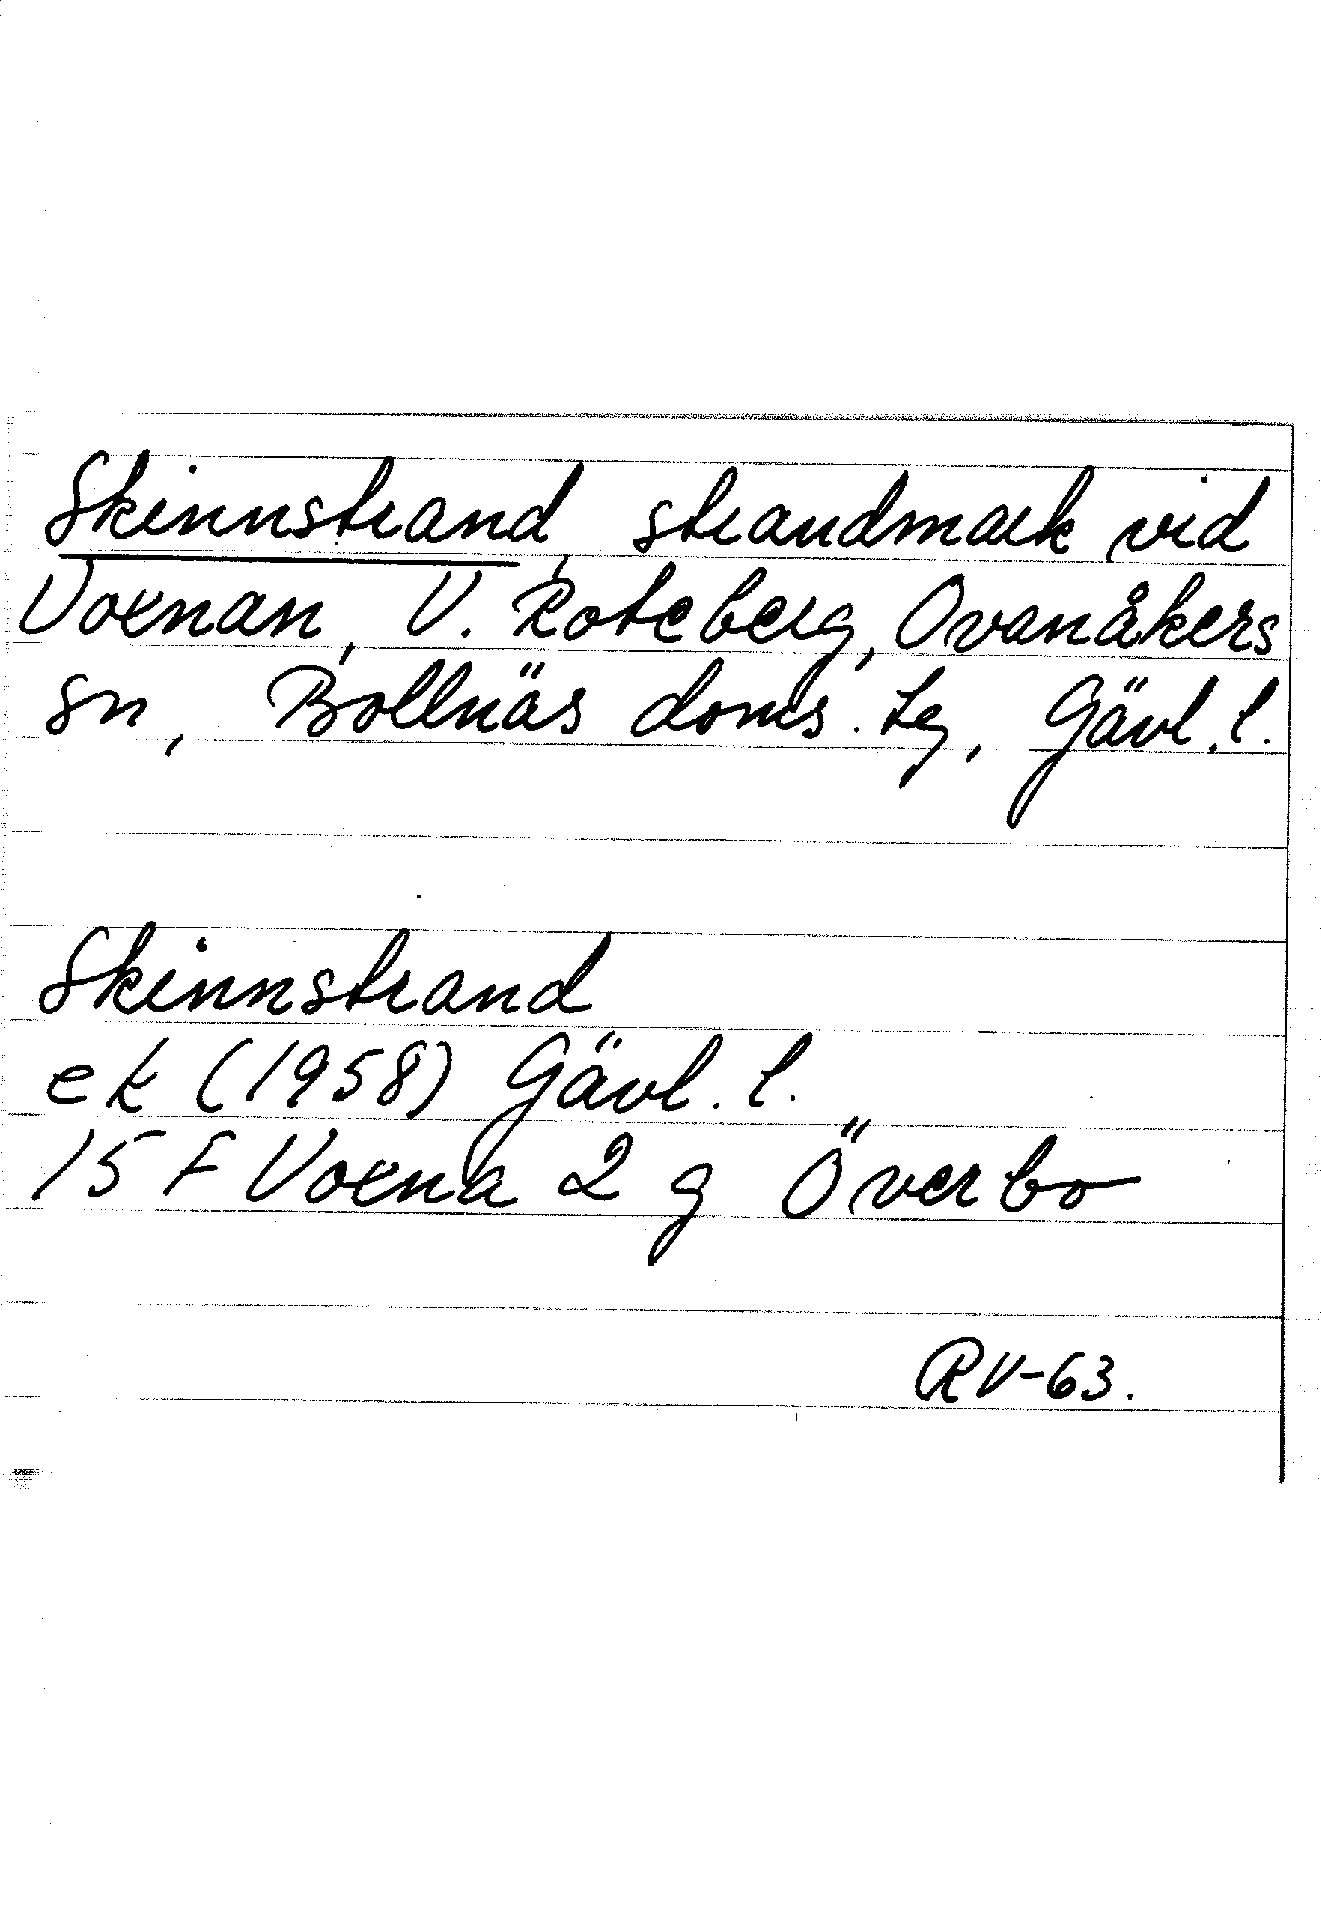 Skinnstrand, strandmark vid
Voxnan, V. Roteberg, Ovanåkers
sn, Bollnäs doms. tg, Gävl. l.
Skinnstrand
ek (1958) Gävl. l.
15 F Voxna 2 g Överbo
RV-63.